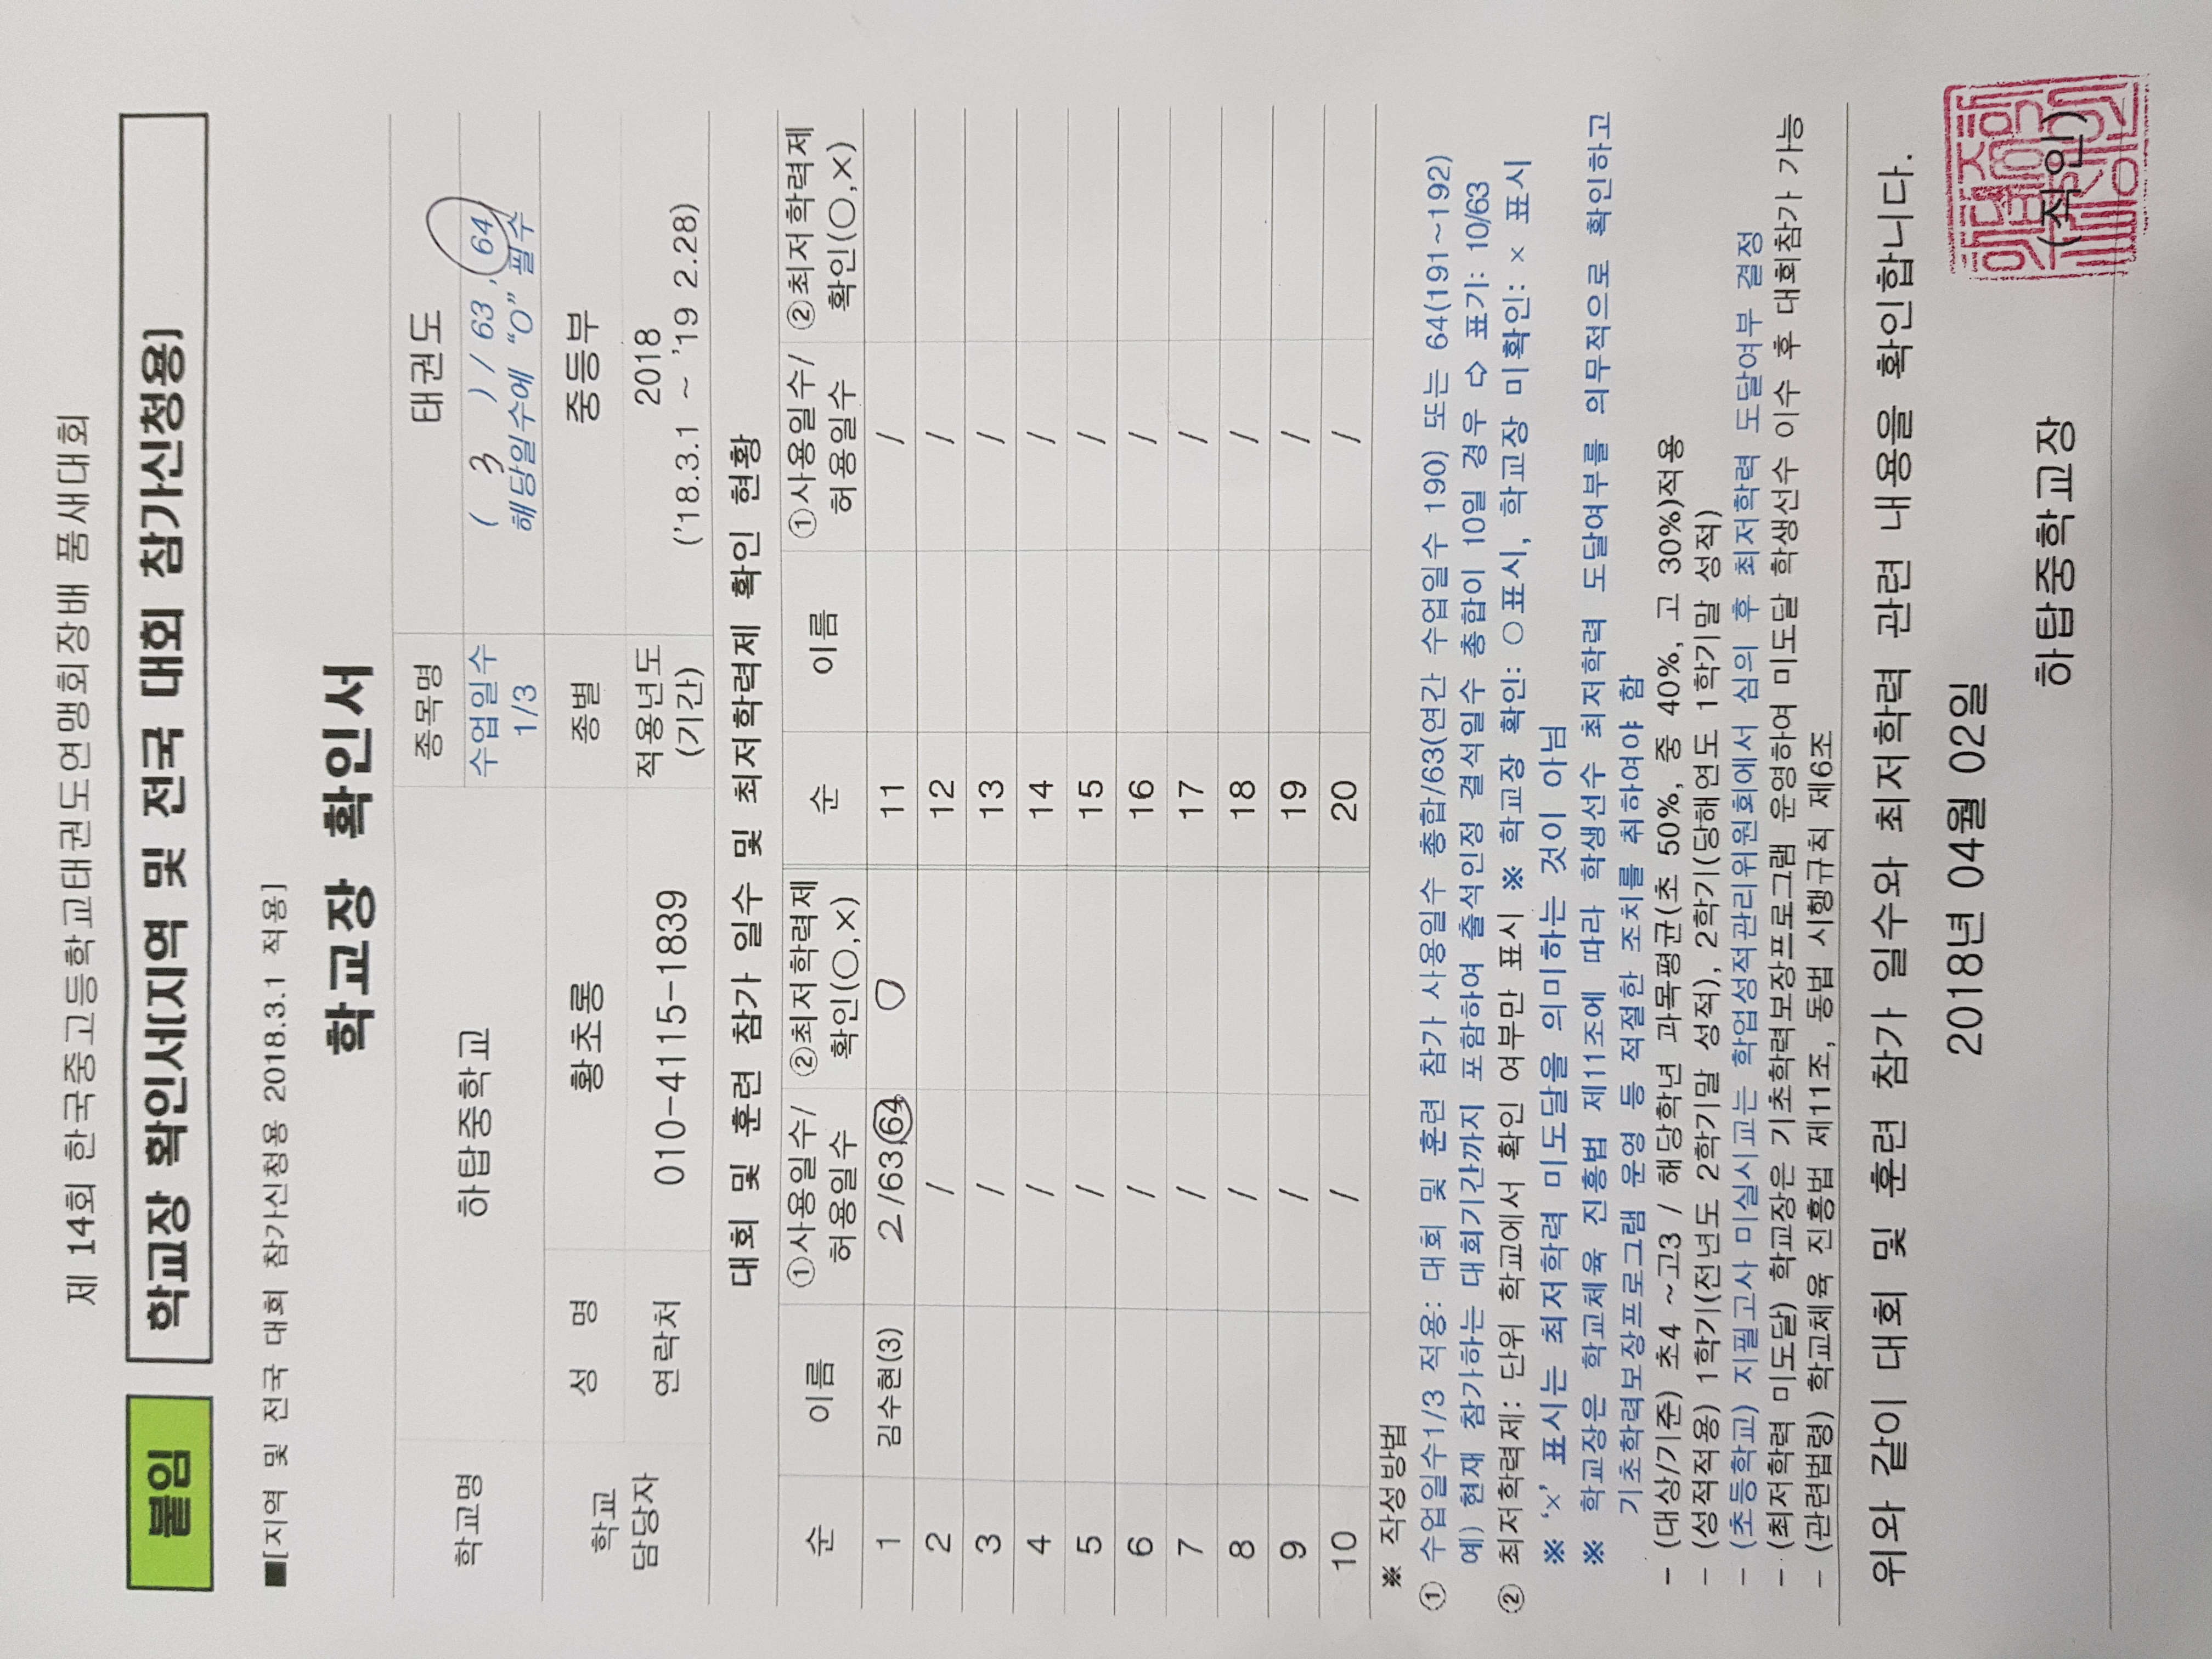 제 14회 한국중고등학교태권도연맹회장배 품새대회
붙임 학교장 확인서[지역 및 전국 대회 참가신청용]
■[지역 및 전국 대회 참가신청용 2018.3.1 적용]
학교장 확인서
학교명 하탑중학교 종목명 태권도
수업일수 1/3 ( 3 ) / 63, 64
해당일수에 "O" 필수
학교 담당자 성 명 황초롱 종별 중등부
연락처 010-4115-1839 적용년도 (기간) 2018
('18.3.1 ~ '19 2.28)
대회 및 훈련 참가 일수 및 최저학력제 확인 현황
순 이름 ①사용일수/허용일수 ②최저학력제 확인(○,×) 순 이름 ①사용일수/허용일수 ②최저학력제 확인(○,×)
1 김수현(3) 2/63,64 ○ 11 /
2 / 12 /
3 / 13 /
4 / 14 /
5 / 15 /
6 / 16 /
7 / 17 /
8 / 18 /
9 / 19 /
10 / 20 /
※ 작성방법
① 수업일수1/3 적용: 대회 및 훈련 참가 사용일수 총합/63(연간 수업일수 190) 또는 64(191~192)
예) 현재 참가하는 대회기간까지 포함하여 출석인정 결석일수 총합이 10일 경우 ⇨ 표기: 10/63
② 최저학력제: 단위 학교에서 확인 여부만 표시 ※ 학교장 확인: ○표시, 학교장 미확인: × 표시
※ '×' 표시는 최저학력 미도달을 의미하는 것이 아님
※ 학교장은 학교체육 진흥법 제11조에 따라 학생선수 최저학력 도달여부를 의무적으로 확인하고
기초학력보장프로그램 운영 등 적절한 조치를 취하여야 함
- (대상/기준) 초4 ~고3 / 해당학년 과목평균(초 50%, 중 40%, 고 30%)적용
- (성적적용) 1학기(전년도 2학기말 성적), 2학기(당해연도 1학기말 성적)
- (초등학교) 지필고사 미실시교는 학업성적관리위원회에서 심의 후 최저학력 도달여부 결정
- (최저학력 미도달) 학교장은 기초학력보장프로그램 운영하여 미도달 학생선수 이수 후 대회참가 가능
- (관련법령) 학교체육 진흥법 제11조, 동법 시행규칙 제6조
위와 같이 대회 및 훈련 참가 일수와 최저학력 관련 내용을 확인합니다.
2018년 04월 02일
하탑중학교장 (직인)